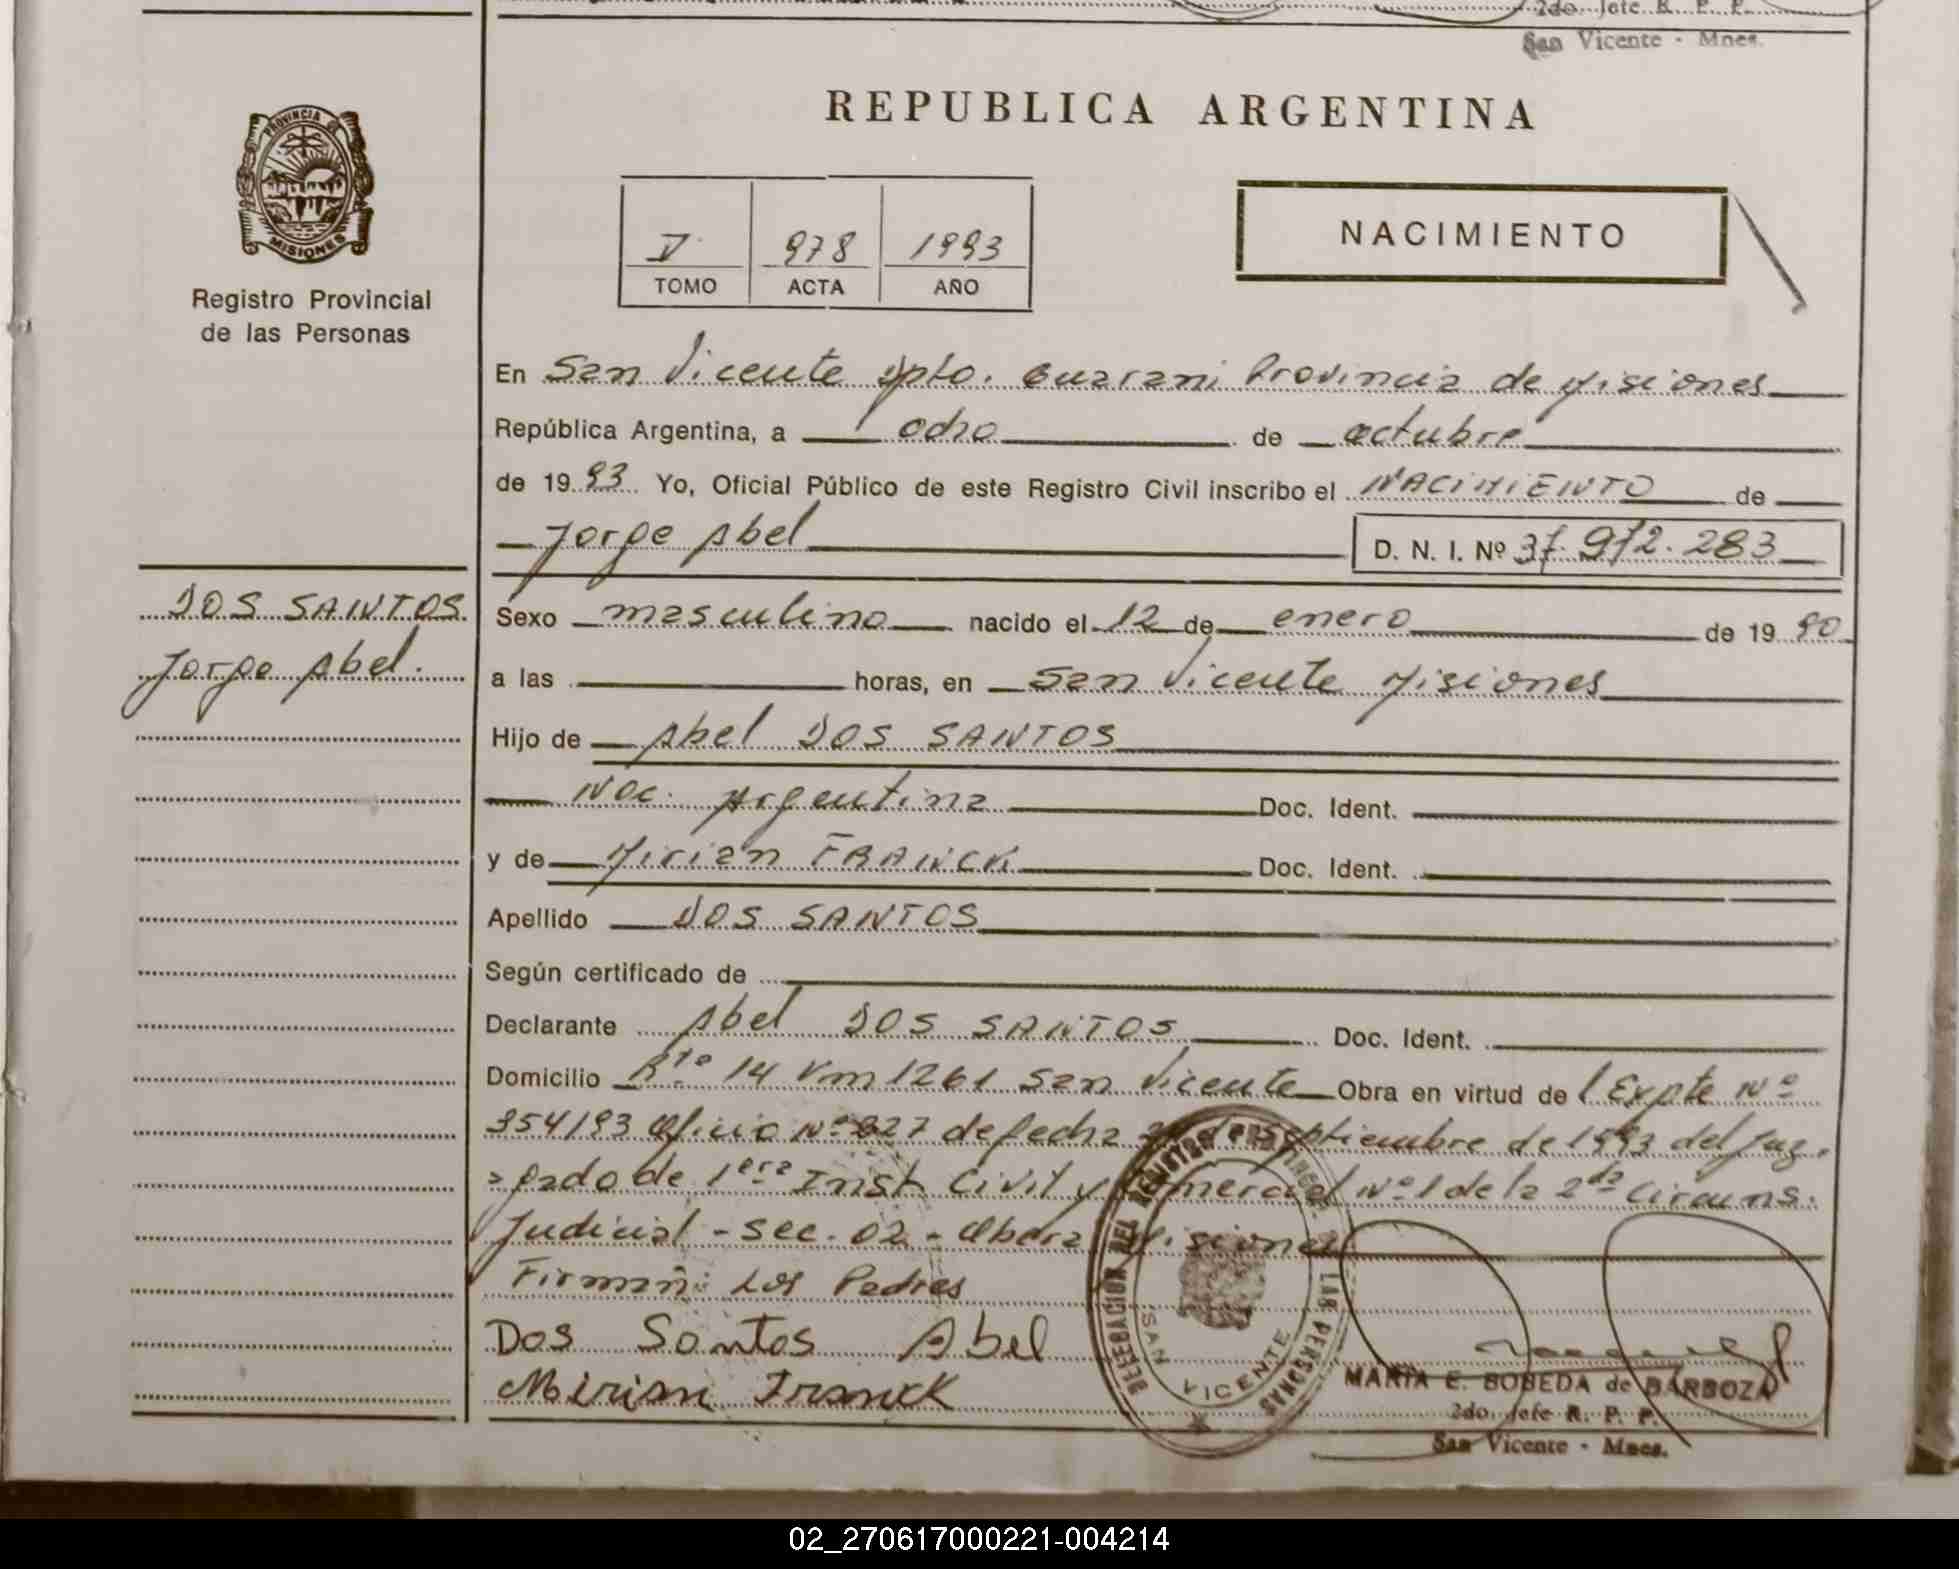 2do. Jefe R. P. P.
San Vicente - Mnes.
PROVINCIA DE
MISIONES
Registro Provincial
de las Personas
REPUBLICA ARGENTINA
V 978 1993
TOMO ACTA AÑO
NACIMIENTO
En San Vicente Dpto. Guarani Provincia de Misiones
República Argentina, a ocho de octubre
de 1993 Yo, Oficial Público de este Registro Civil inscribo el NACIMIENTO de
Jorge Abel D. N. I. Nº 37.972.283
DOS SANTOS
Jorge Abel.
Sexo masculino nacido el 12 de enero de 1990
a las horas, en San Vicente Misiones
Hijo de Abel DOS SANTOS
Nac. Argentina Doc. Ident.
y de Mirian FRANCK Doc. Ident.
Apellido DOS SANTOS
Según certificado de
Declarante Abel DOS SANTOS Doc. Ident.
Domicilio Rta 14 Km 1261 San Vicente Obra en virtud del Expte Nº
954/93 Oficio Nº 827 de fecha de septiembre de 1993 del Juz
gado de 1era Inst. Civil y Comercial Nº 1 de la 2da Circuns.
Judicial - Sec. 02 - Obera Misiones
Firman: Los Padres
Dos Santos Abel
Mirian Franck
DELEGACION DEL REGISTRO PROVINCIAL DE LAS PERSONAS
SAN VICENTE
MARIA E. BOBEDA de BARBOZA
2do. Jefe R. P. P.
San Vicente - Mnes.
02_270617000221-004214